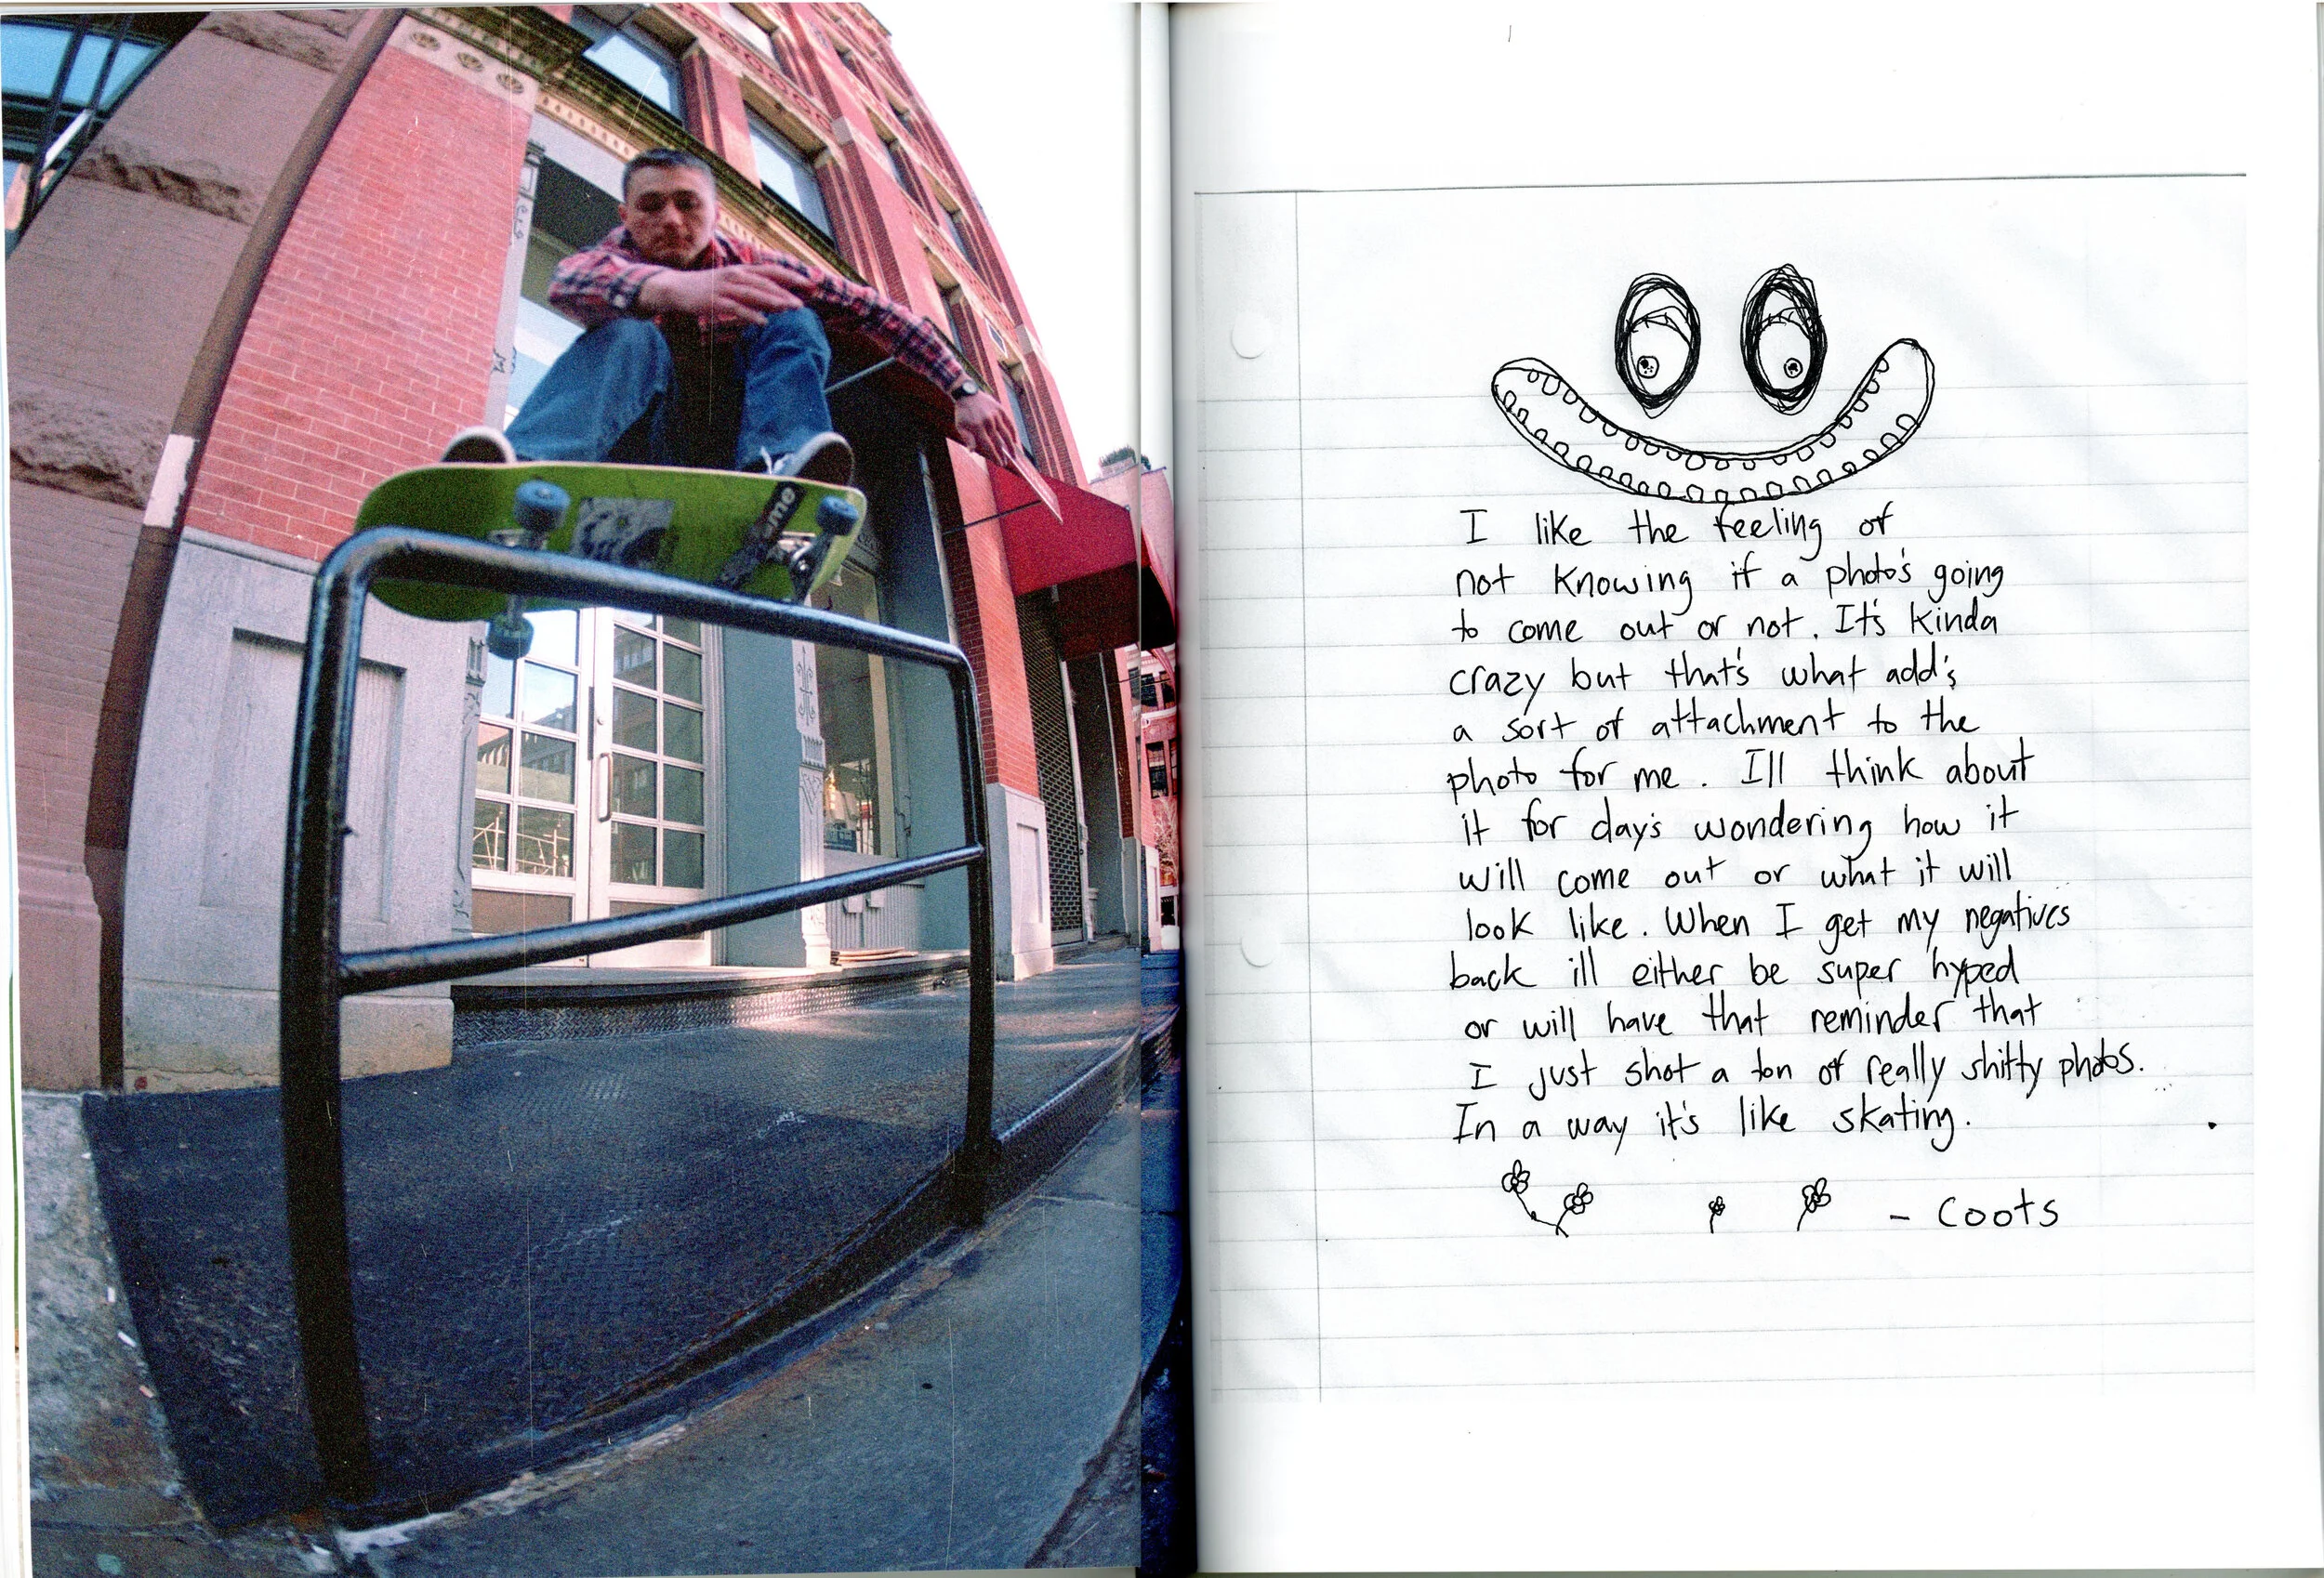 I like the feeling of
not knowing if a photo's going
to come out or not. It's kinda
crazy but that's what add's
a sort of attachment to the
photo for me. I'll think about
it for day's wondering how it
will come out or what it will
look like. When I get my negatives
back ill either be super hyped
or will have that reminder that
I just shot a ton of really shitty photos.
In a way it's like skating.
- Coots